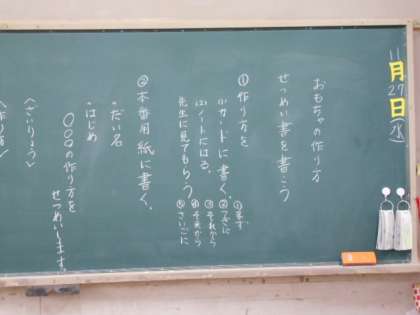 11月27日(水)
おもちゃの作り方
せつめい書を書こう
①作り方を
(1)カードに書く。
(2)ノートにはる。
先生に見てもらう
①まず
②つぎに
③それから
④そのあとから
⑤さいごに
②本番用紙に書く。
・だい名
・はじめ
〇〇の作り方を
せつめいします。
<ざいりょう>
<作り方>